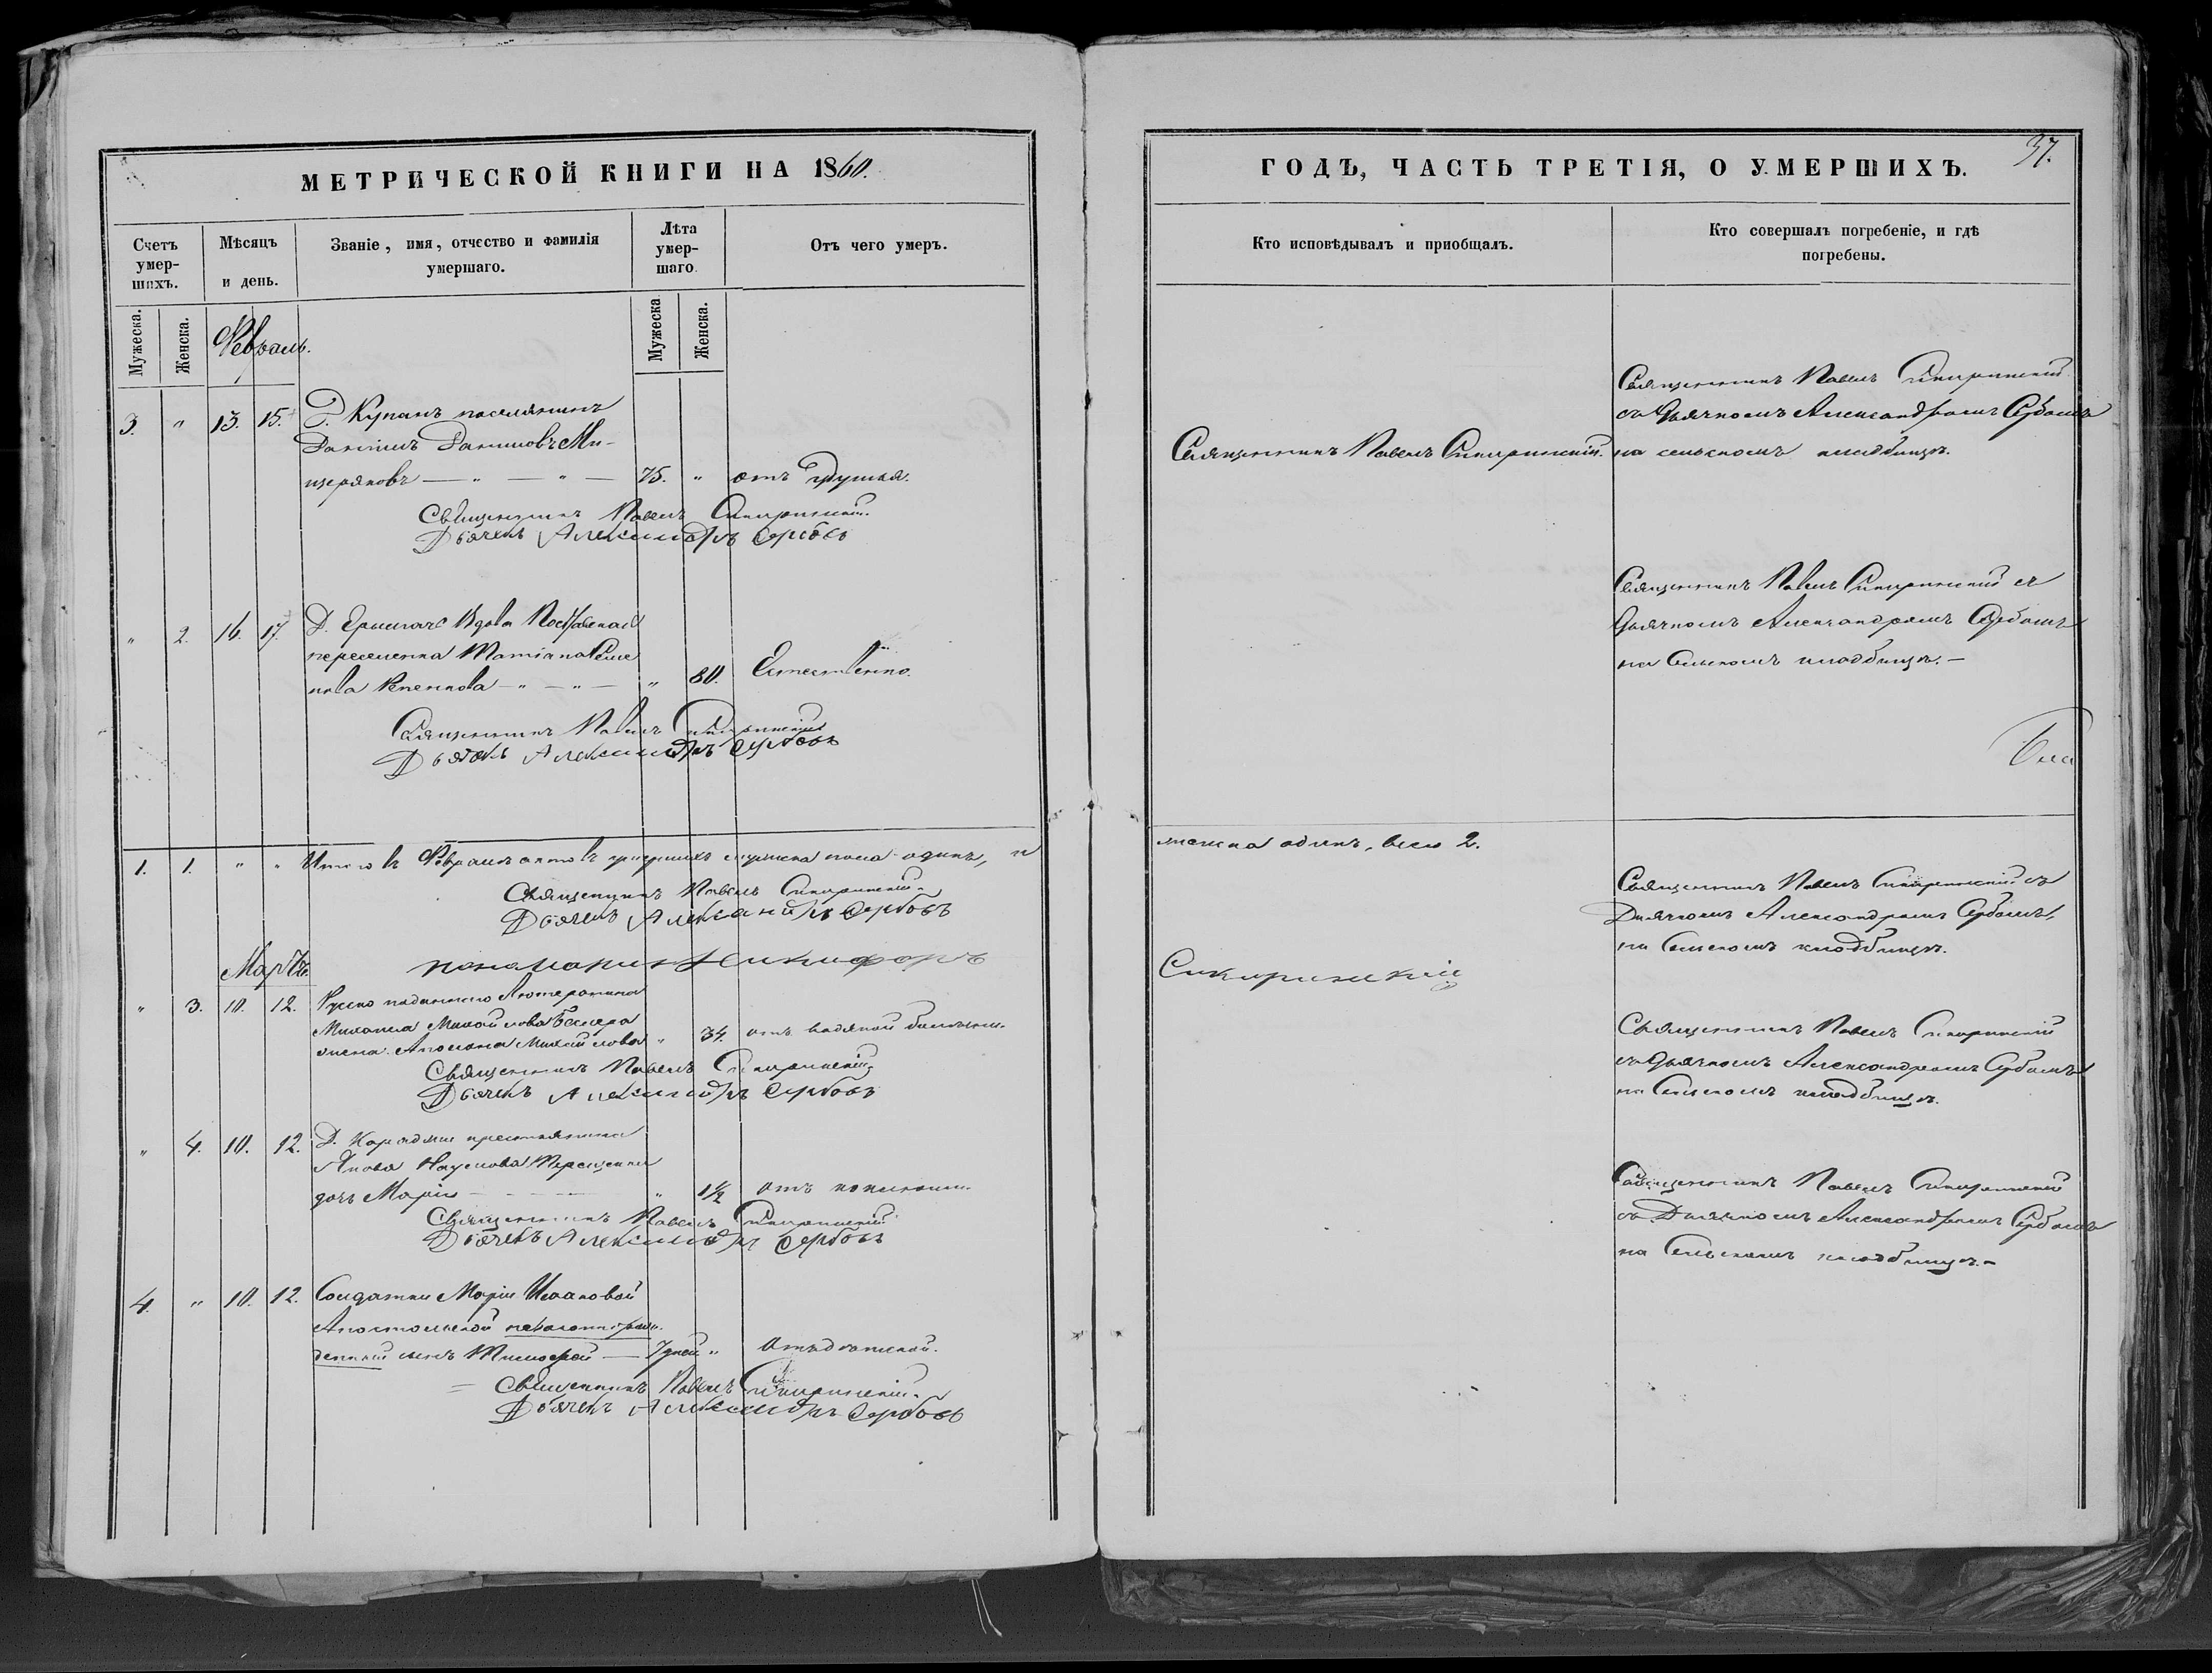 МЕТРИЧЕСКОЙ КНИГИ НА 1860.
Счетъ умер-шихъ.
Мѣсяцъ и день.
Званіе, имя, отчество и фамилія умершаго.
Лѣта умер-шаго.
Отъ чего умеръ.
Мужеска.
Женска.
Мужеска
Женска.
Февраль.
3. " 13. 15. Д. Купанъ поселянинъ
Даніилъ Даниловъ Ми-
щеряковъ — " — " — 75. " отъ удушья.
Священникъ Павелъ Сикиринскій.
Дьячекъ Александръ Сербовъ
" 2. 16. 17. Д. вдова
переселенка
80. Естественно.
Священникъ Павелъ Сикиринскій
Дьячекъ Александръ Сербовъ
1. 1. " " Итого въ Февралѣ умершихъ мужеска пола одинъ, и
Священникъ Павелъ Сикиринскій.
Дьячекъ Александръ Сербовъ
Мартъ. пономарь Никифоръ
" 3. 10. 12. Лютеранина
Михаила Михайлова
жена Михайлова " 34. отъ водяной болѣзни.
Священникъ Павелъ Сикиринскій
Дьячекъ Александръ Сербовъ
" 4. 10. 12. Д. крестьянина
Якова Наумова
дочь Марія " 1½
Священникъ Павелъ Сикиринскій
Дьячекъ Александръ Сербовъ
4. " 10. 12. Солдатки Маріи Исааковой
Апостольской незаконнорож-
денный сынъ Тимофей — 7 дней " отъ дѣтской.
Священникъ Павелъ Сикиринскій.
Дьячекъ Александръ Сербовъ
ГОДЪ, ЧАСТЬ ТРЕТІЯ, О УМЕРШИХЪ.
37.
Кто исповѣдывалъ и приобщалъ.
Кто совершалъ погребеніе, и гдѣ погребены.
Священникъ Павелъ Сикиринскій
съ Дьячкомъ Александромъ Сербовымъ
Священникъ Павелъ Сикиринскій. на сельскомъ кладбищѣ.
Священникъ Павелъ Сикиринскій съ
Дьячкомъ Александромъ Сербовымъ
на Сельскомъ кладбищѣ. —
женска одинъ, всего 2.
Священникъ Павелъ Сикиринскій съ
Дьячкомъ Александромъ Сербовымъ,
на Сельскомъ кладбищѣ.
Сикиринскій
Священникъ Павелъ Сикиринскій
съ Дьячкомъ Александромъ Сербовымъ
на Сельскомъ кладбищѣ.
Священникъ Павелъ Сикиринскій
съ Дьячкомъ Александромъ Сербовымъ
на Сельскомъ кладбищѣ. —